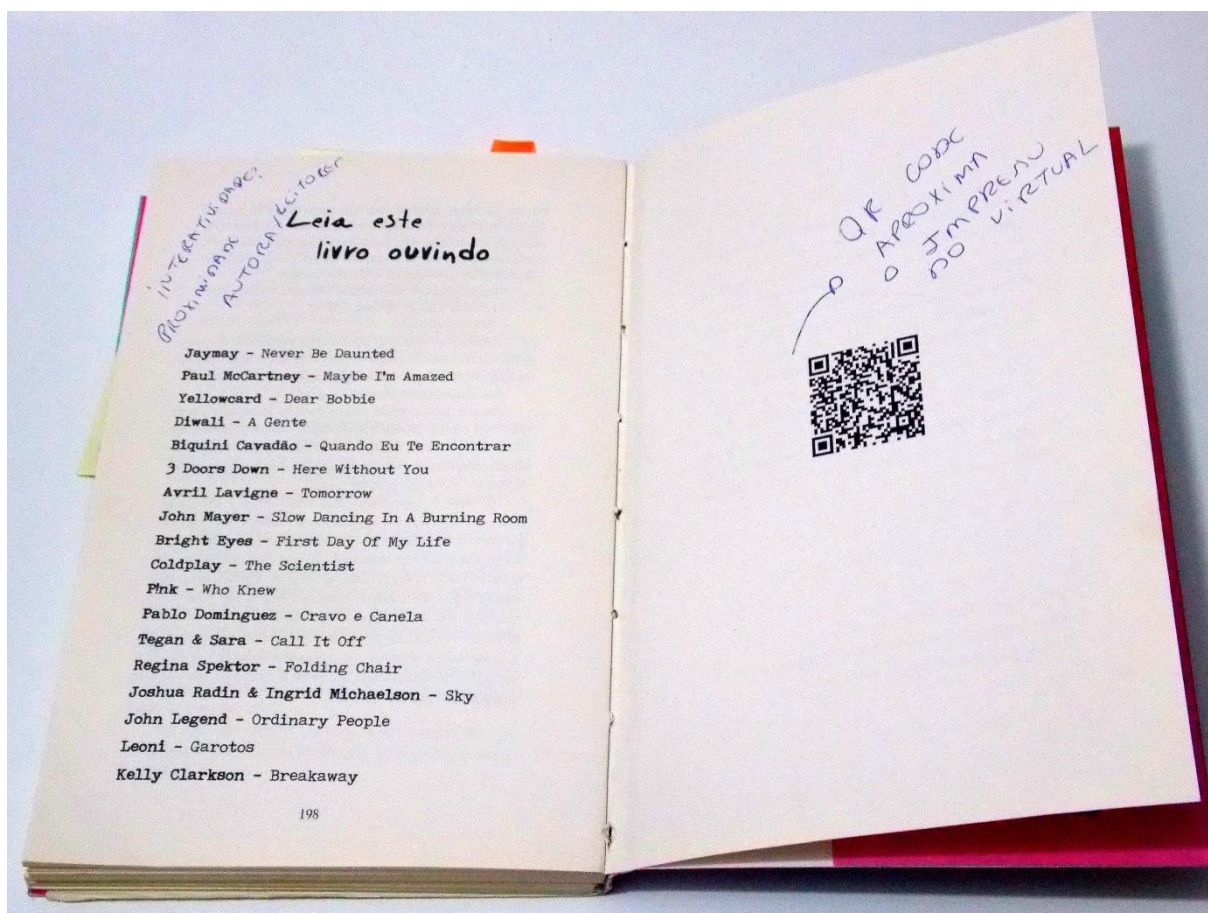 INTERATIVIDADE?
PROXIMIDADE
AUTORA/LEITORES
Leia este
livro ouvindo
Jaymay - Never Be Daunted
Paul McCartney - Maybe I'm Amazed
Yellowcard - Dear Bobbie
Diwali - A Gente
Biquini Cavadão - Quando Eu Te Encontrar
3 Doors Down - Here Without You
Avril Lavigne - Tomorrow
John Mayer - Slow Dancing In A Burning Room
Bright Eyes - First Day Of My Life
Coldplay - The Scientist
P!nk - Who Knew
Pablo Dominguez - Cravo e Canela
Tegan & Sara - Call It Off
Regina Spektor - Folding Chair
Joshua Radin & Ingrid Michaelson - Sky
John Legend - Ordinary People
Leoni - Garotos
Kelly Clarkson - Breakaway
198
QR CODE
APROXIMA
O IMPRESSO
DO VIRTUAL